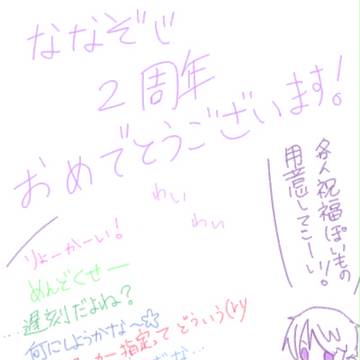 ななぞじ
２周年
おめでとうございます!
わぃ
わぃ
各人祝福ぽいもの
用意してこーい!!
りょーかーい!
めんどくせー
…遅刻だよね?
何にしようかな~☆
指定って どういう(ry
だな…